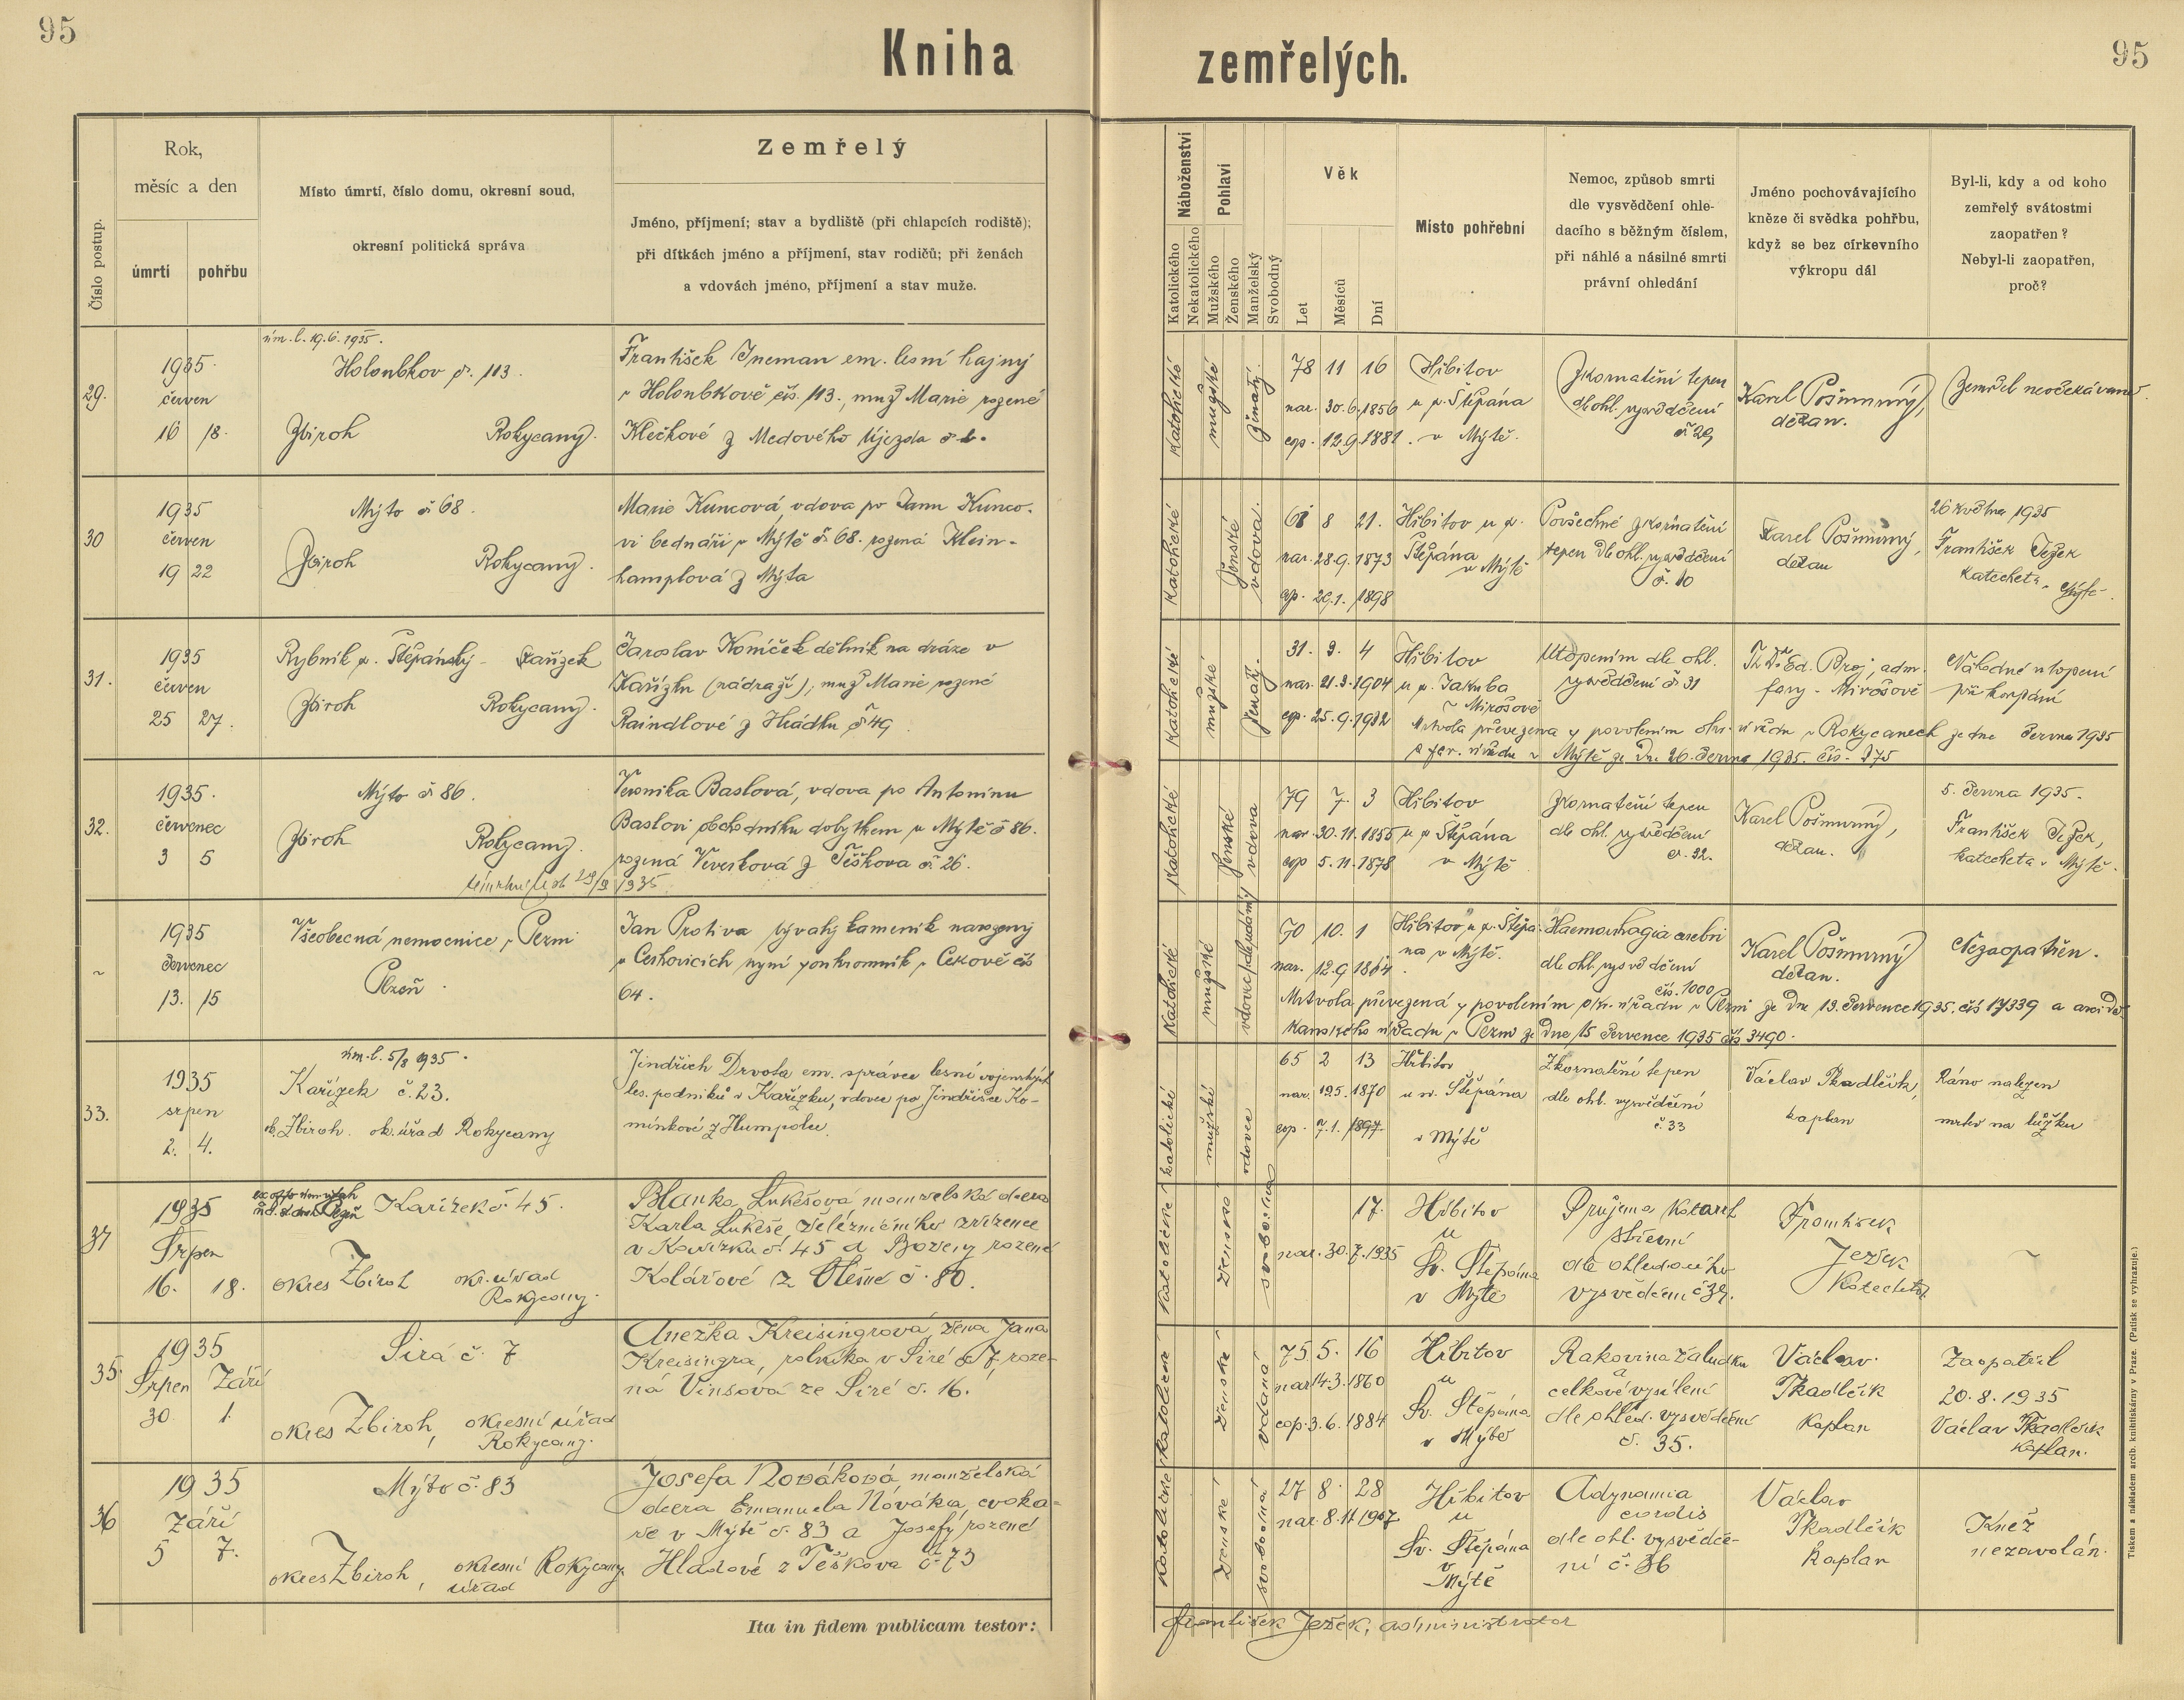 95
95
Kniha zemřelých.
Číslo postup.
Rok,
měsíc a den
úmrtí
pohřbu
Místo úmrtí, číslo domu, okresní soud,
okresní politická správa
Zemřelý
Jméno, příjmení; stav a bydliště (při chlapcích rodiště);
při dítkách jméno a příjmení, stav rodičů; při ženách
a vdovách jméno, příjmení a stav muže.
Náboženství
Katolického
Nekatolického
Pohlaví
Mužského
Ženského
Manželský
Svobodný
Věk
Let
Měsíců
Dní
Místo pohřební
Nemoc, způsob smrti
dle vysvědčení ohle-
dacího s běžným číslem,
při náhlé a násilné smrti
právní ohledání
Jméno pochovávajícího
kněze či svědka pohřbu,
když se bez církevního
výkropu dál
Byl-li, kdy a od koho
zemřelý svátostmi
zaopatřen?
Nebyl-li zaopatřen,
proč?
29.
1935.
červen
16 18.
úm. l. 19.6.1935.
Holoubkov č. 113.
Zbiroh Rokycany.
František Ineman em. lesní hajný
v Holoubkově čís. 113., muž Marie rozené
Klečkové z Medového Újezda č.
katolické
mužské
ženatý.
78 11 16
nar. 30.6.1856
cop. 12.9.1881.
Hřbitov
u sv. Štěpána
v Mýtě.
Zkornatění tepen
dle ohl. vysvědčení
č 29
Karel Pošmurný,
děkan.
Zemřel neočekávaně.
30
1935
červen
19 22
Mýto č 68.
Zbiroh Rokycany.
Marie Kuncová, vdova po Janu Kunco-
vi bednáři v Mýtě č. 68. rozená Klein-
hamplová z Mýta
katolické
ženské
vdova.
61 8 21.
nar. 28.9.1873
cop. 29.1. 1898
Hřbitov u sv.
Štěpána
v Mýtě
Povšechné zkornatění
tepen dle ohl. vysvědčení
č. 10
Karel Pošmurný,
děkan
26 května 1935
František Ježek
katecheta v Mýtě.
31.
1935
červen
25 27.
Rybník sv. Štěpánský - Kařízek
Zbiroh Rokycany.
Jaroslav Koníček dělník na dráze v
Kařízku (nádraží), muž Marie rozené
Raindlové z Hrádku č 49.
katolické
mužské
ženatý.
31. 3. 4
nar. 21.3.1904
cop. 25.9.1932
Hřbitov
u sv. Jakuba
v Mirošově
Utopením dle ohl.
vysvědčení č 31
Th Dr. Ed. Broj, adm.
fary v Mirošově
Náhodné utopení
při koupání
Mrtvola převezena s povolením okr. úřadu v Rokycanech ze dne června 1935
a far. úřadu v Mýtě ze dne 26. června 1935. čís. 275
32.
1935.
červenec
3 5
Mýto č 86.
Zbiroh Rokycany.
Veronika Baslová, vdova po Antonínu
Baslovi obchodníku dobytkem v Mýtě č 86.
rozená Veverková z Těškova č. 26.
katolické
ženské
vdova
79 7. 3
nar. 30.11.1855
cop 5.11.1878
Hřbitov
u sv Štěpána
v Mýtě
Zkornatění tepen
dle ohl. vysvědčení
č. 32.
Karel Pošmurný,
děkan.
5. června 1935.
František Ježek,
katecheta v Mýtě.
1935
červenec
13. 15
Všeobecná nemocnice v Plzni
Plzeň.
Jan Protiva bývalý kameník narozený
v Cerhovicích nyní soukromník v Cekově čís
64.
katolické
mužské
90 10. 1
nar. 12.9 1844
Hřbitov u sv. Štěpá-
na v Mýtě.
Haemorrhagia cerebri
dle ohl. vysvědčení
čís. 1000
Karel Pošmurný
děkan.
Nezaopatřen.
Mrtvola převezená s povolením okr. úřadu v Plzni ze dne 13. července 1935. čís 17339 a arciděkanského úřadu v Plzni ze dne 15 července 1935 čís 3490.
33.
1935
srpen
2. 4.
úm. l. 5/8 1935.
Kařízek č. 23.
ok. Zbiroh. ok. úřad Rokycany
Jindřich Drvota em. správce lesní vojenských
les. podniků v Kařízku, vdovec po Jindřišce Ko-
mínkové z Humpolce.
katolické
mužské
vdovec
65 2 13
nar. 19.5. 1870
cop. 7.1. 1897.
Hřbitov
u sv. Štěpána
v Mýtě
Zkornatění tepen
dle ohl. vysvědčení
č. 33
Václav Tkadlčík,
kaplan
Ráno nalezen
mrtev na lůžku
34
1935
Srpen
16. 18.
Kařízek č. 45.
okres Zbiroh okr. úřad
Rokycany.
Blanka Lukešová manželská dcera
Karla Lukeše železničního zřízence
v Kařízku č. 45 a Boženy rozené
Kolářové z Olešné č. 80.
katolické
ženské
svobodná
17.
nar. 30.7.1935
Hřbitov
u
Sv. Štěpána
v Mýtě
Průjem katarrh
střevní
dle ohledacího
vysvědčení č 34.
František
Ježek
Katecheta
35.
1935
Srpen Září
30. 1.
Sirá č. 7
okres Zbiroh, okresní úřad
Rokycany.
Anežka Kreisingrová, žena Jana
Kreisingra, rolníka v Siré č. 7. roze-
ná Vinšová ze Siré č. 16.
katolické
ženské
vdaná
75 5. 16
nar 14.3.1860
cop. 3.6.1884
Hřbitov
u
Sv. Štěpána
v Mýtě
Rakovina žaludku
a
celkové vysílení
dle ohled. vysvědčení
č. 35.
Václav
Tkadlčík
Kaplan
Zaopatřil
20.8.1935
Václav Tkadlčík
kaplan.
36
1935
září
5 7.
Mýto č. 83
okres Zbiroh, okresní Rokycany
úřad
Josefa Nováková, manželská
dcera Emanuela Nováka, cvoka-
ře v Mýtě č. 83 a Josefy rozené
Hladové z Těškova č. 73
katolické
ženské
svobodná
27 8. 28
nar. 8.11 1907.
Hřbitov
u
Sv. Štěpána
v
Mýtě
Adynamia
cordis
dle ohl. vysvědče-
ní č. 36
Václav
Tkadlčík
Kaplan
Kněz
nezavolán.
Ita in fidem publicam testor:
František Ježek, administrator
Tiskem a nákladem arcib. knihtiskárny v Praze. (Patisk se vyhrazuje.)